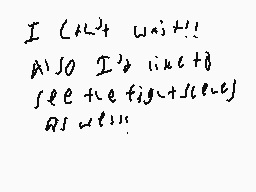 I can't wait!!
Also I'd like to
see the fight scenes
as well!!